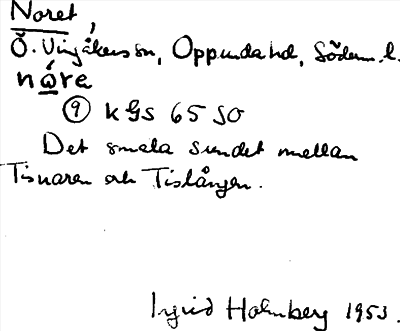 Noret,
Ö. Vingåkers sn, Oppunda hd, Södem. l.
nώ̱ra
⑨ kGs 65 SO
Det smala sundet mellan
Tisnaren och Tislången.
Ingrid Holmberg 1953.